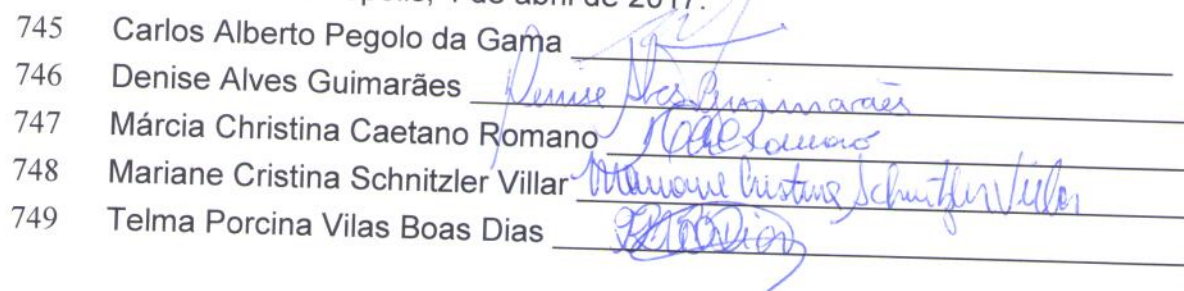 de abril de 2017.
745 Carlos Alberto Pegolo da Gama
746 Denise Alves Guimarães Denise Alves Guimarães
747 Márcia Christina Caetano Romano
748 Mariane Cristina Schnitzler Villar Mariane Cristina Schnitzler Villar
749 Telma Porcina Vilas Boas Dias